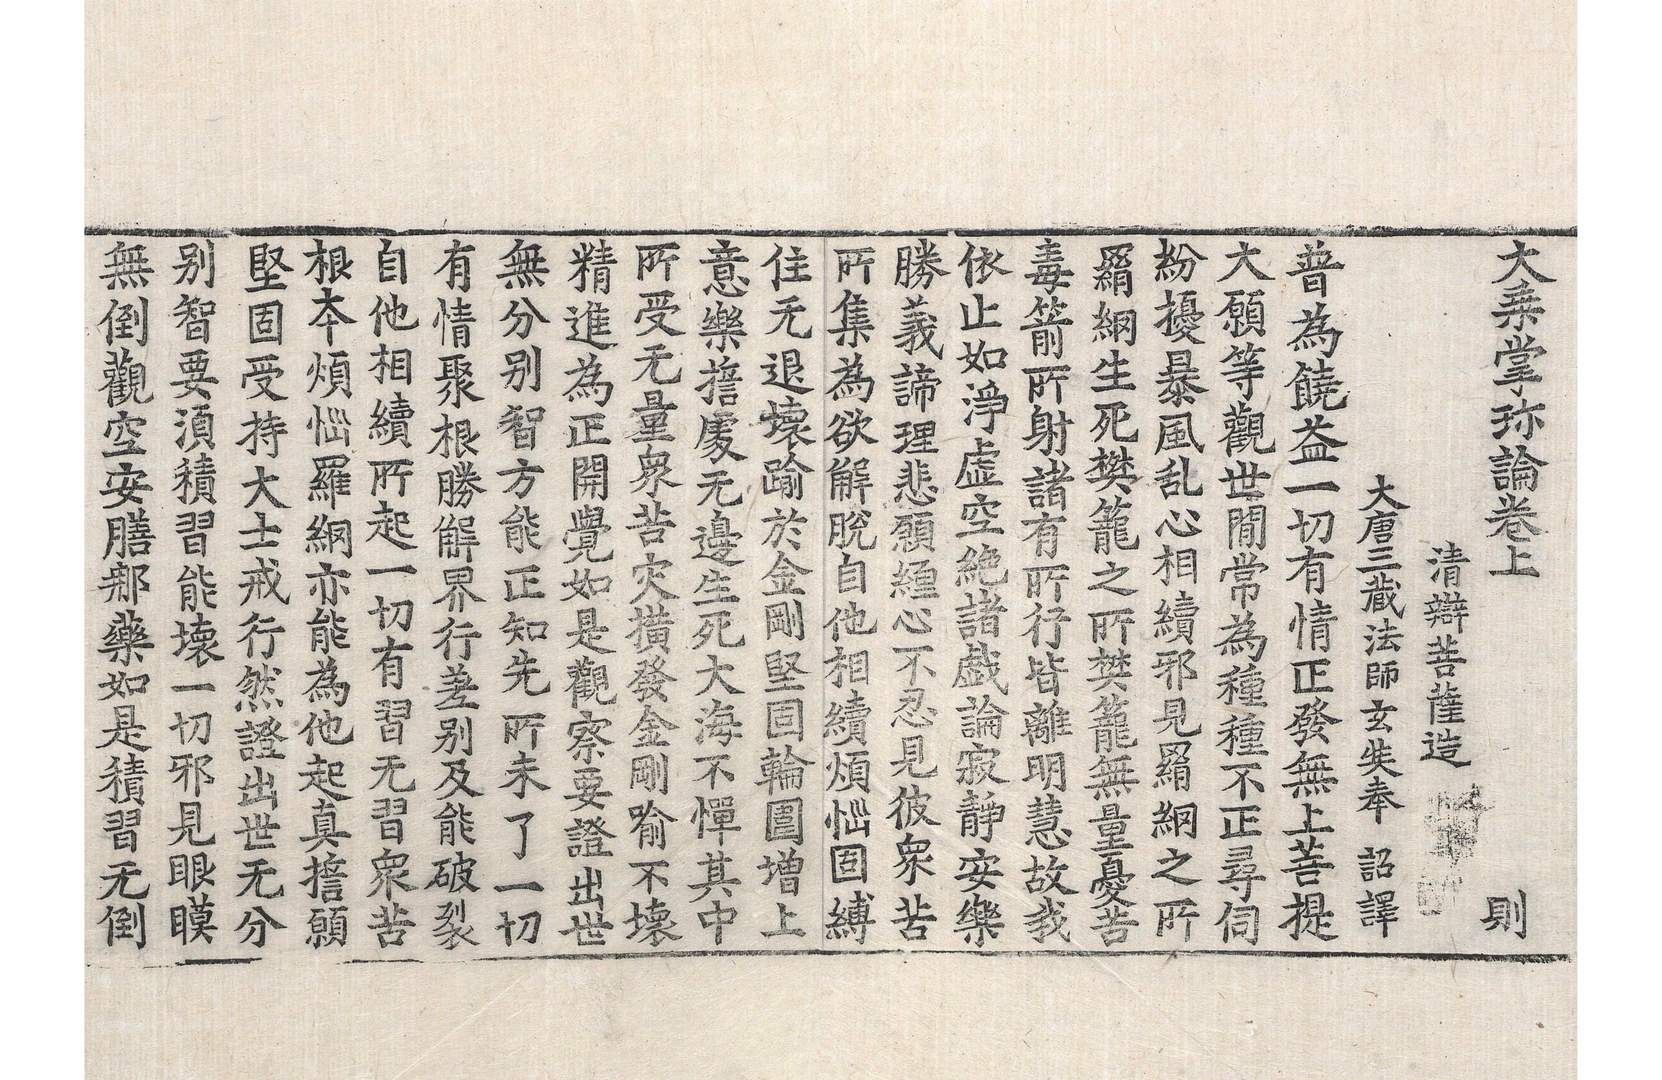 大乗掌珎論卷上 則
清辯菩薩造
大唐三蔵法師玄奘奉 詔譯
普為饒益一切有情正發無上菩提
大願等觀世間常為種種不正尋伺
紛擾暴風乱心相續邪見羂網之所
羂網生死樊籠之所樊籠無量憂苦
毒箭所射諸有所行皆離明慧故我
依止如淨虚空絶諸戯論寂靜安樂
勝義諦理悲願纏心不忍見彼衆苦
所集為欲解脫自他相續煩惱固縛
住无退壊踰於金剛堅固輪圍增上
意樂擔處无邊生死大海不憚其中
所受无量衆苦灾横發金剛喻不壊
精進為正開覺如是觀察要證出世
無分别智方能正知先所未了一切
有情聚根勝解界行差别及能破裂
自他相續所起一切有習无習衆苦
根本煩惱羅網亦能為他起真擔願
堅固受持大士戒行然證出世无分
别智要湏積習能壊一切邪見眼瞙
無倒觀空安膳那藥如是積習无倒